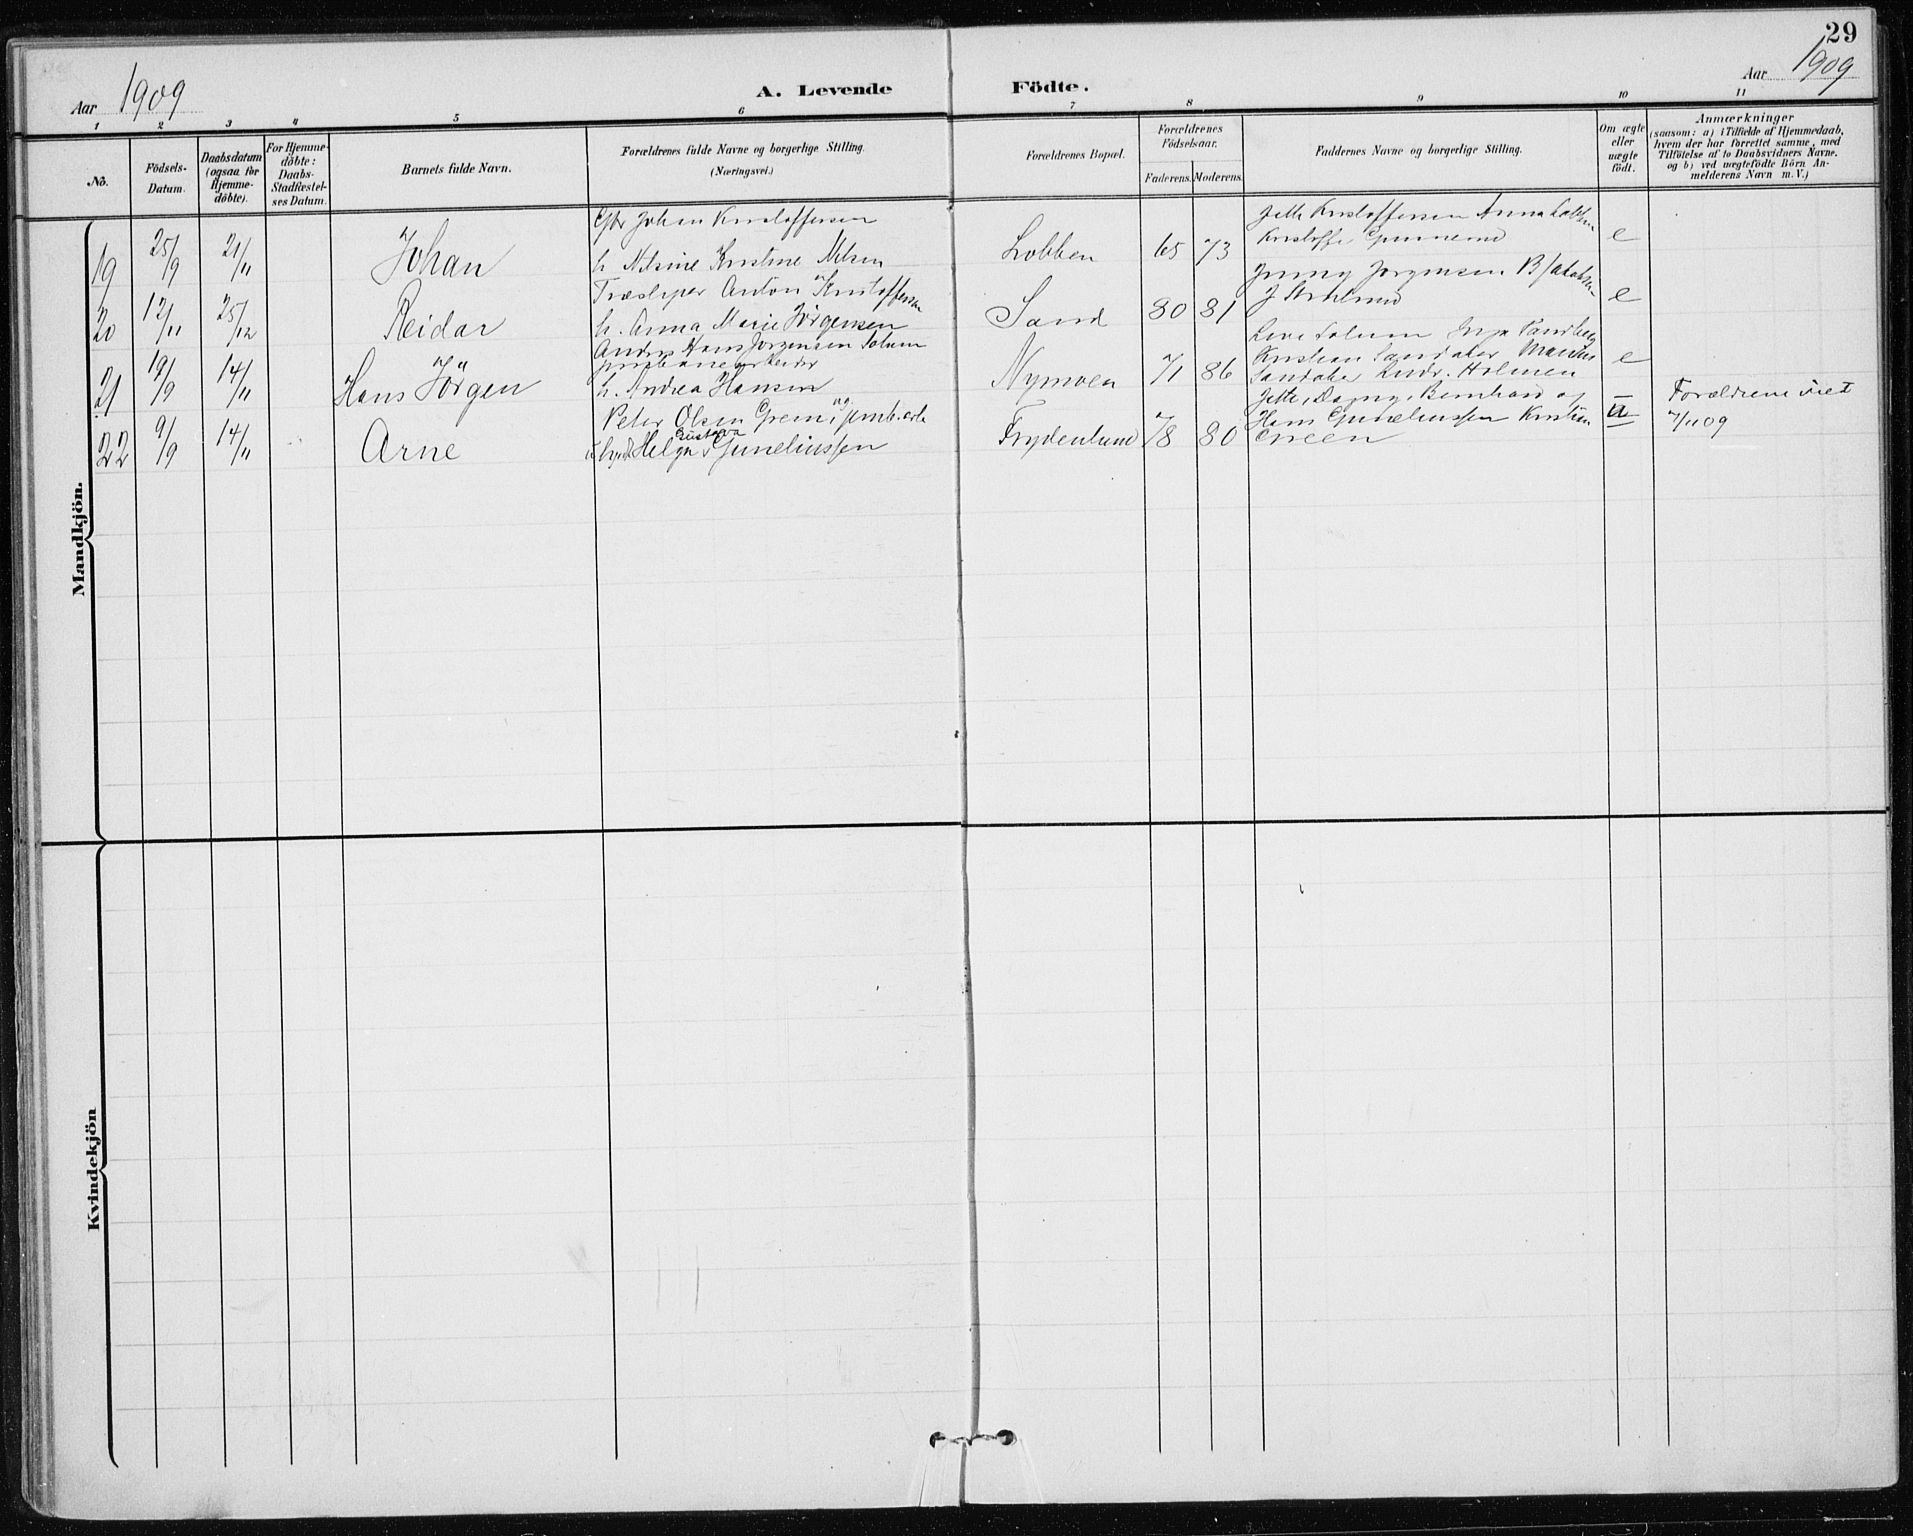 29
Aar 1909
A. Levende Födte.
Aar 1909
1 2 3 4 5 6 7 8 9 10 11
No.
Födsels-Datum.
Daabsdatum (ogsaa for Hjemme-döbte).
For Hjemme-döbte: Daabs-Stadfæstel-ses Datum.
Barnets fulde Navn.
Forældrenes fulde Navne og borgerlige Stilling.
(Næringsvei.)
Forældrenes Bopæl.
Forældrenes Födselsaar.
Faderens. Moderens.
Faddernes Navne og borgerlige Stilling.
Om ægte eller uægte födt.
Anmærkninger
(saasom: a) i Tilfælde af Hjemmedaab,
hvem der har forrettet samme, med
Tilföielse af to Daabsvidners Navne.
og b) ved uægtefödte Börn An-
melderens Navn m. V.)
Mandkjön.
19 25/9 21/11 Johan
Johan Kristoffersen
h. Nilsine Kristine Nilsen
Lobben 65 73
Jette Kristoffersen Anna
e
20 12/11 25/12 Reidar
Træsliper Anton Kristoffersen
h. Anna Marie Jörgensen
Sand 80 81
Jenny Jörgensen
e
21 19/9 14/11 Hans Jörgen
Anders Hans Jörgensen Solum
jernbanearbeider
h. Andrea Hansen
Nymoen 71 86
Solum Inga
Kristian Sandaker
Sandaker Holmen
e
22 9/9 14/11 Arne
Peter Olsen Green jernb.arb
Helga Gustava Guneliussen
Frydenlund 78 80
Jette, Dagny, Bernhard og
Hans Guneliussen Kristian
Green
u
Forældrene viet
7/11 09
Kvindekjön